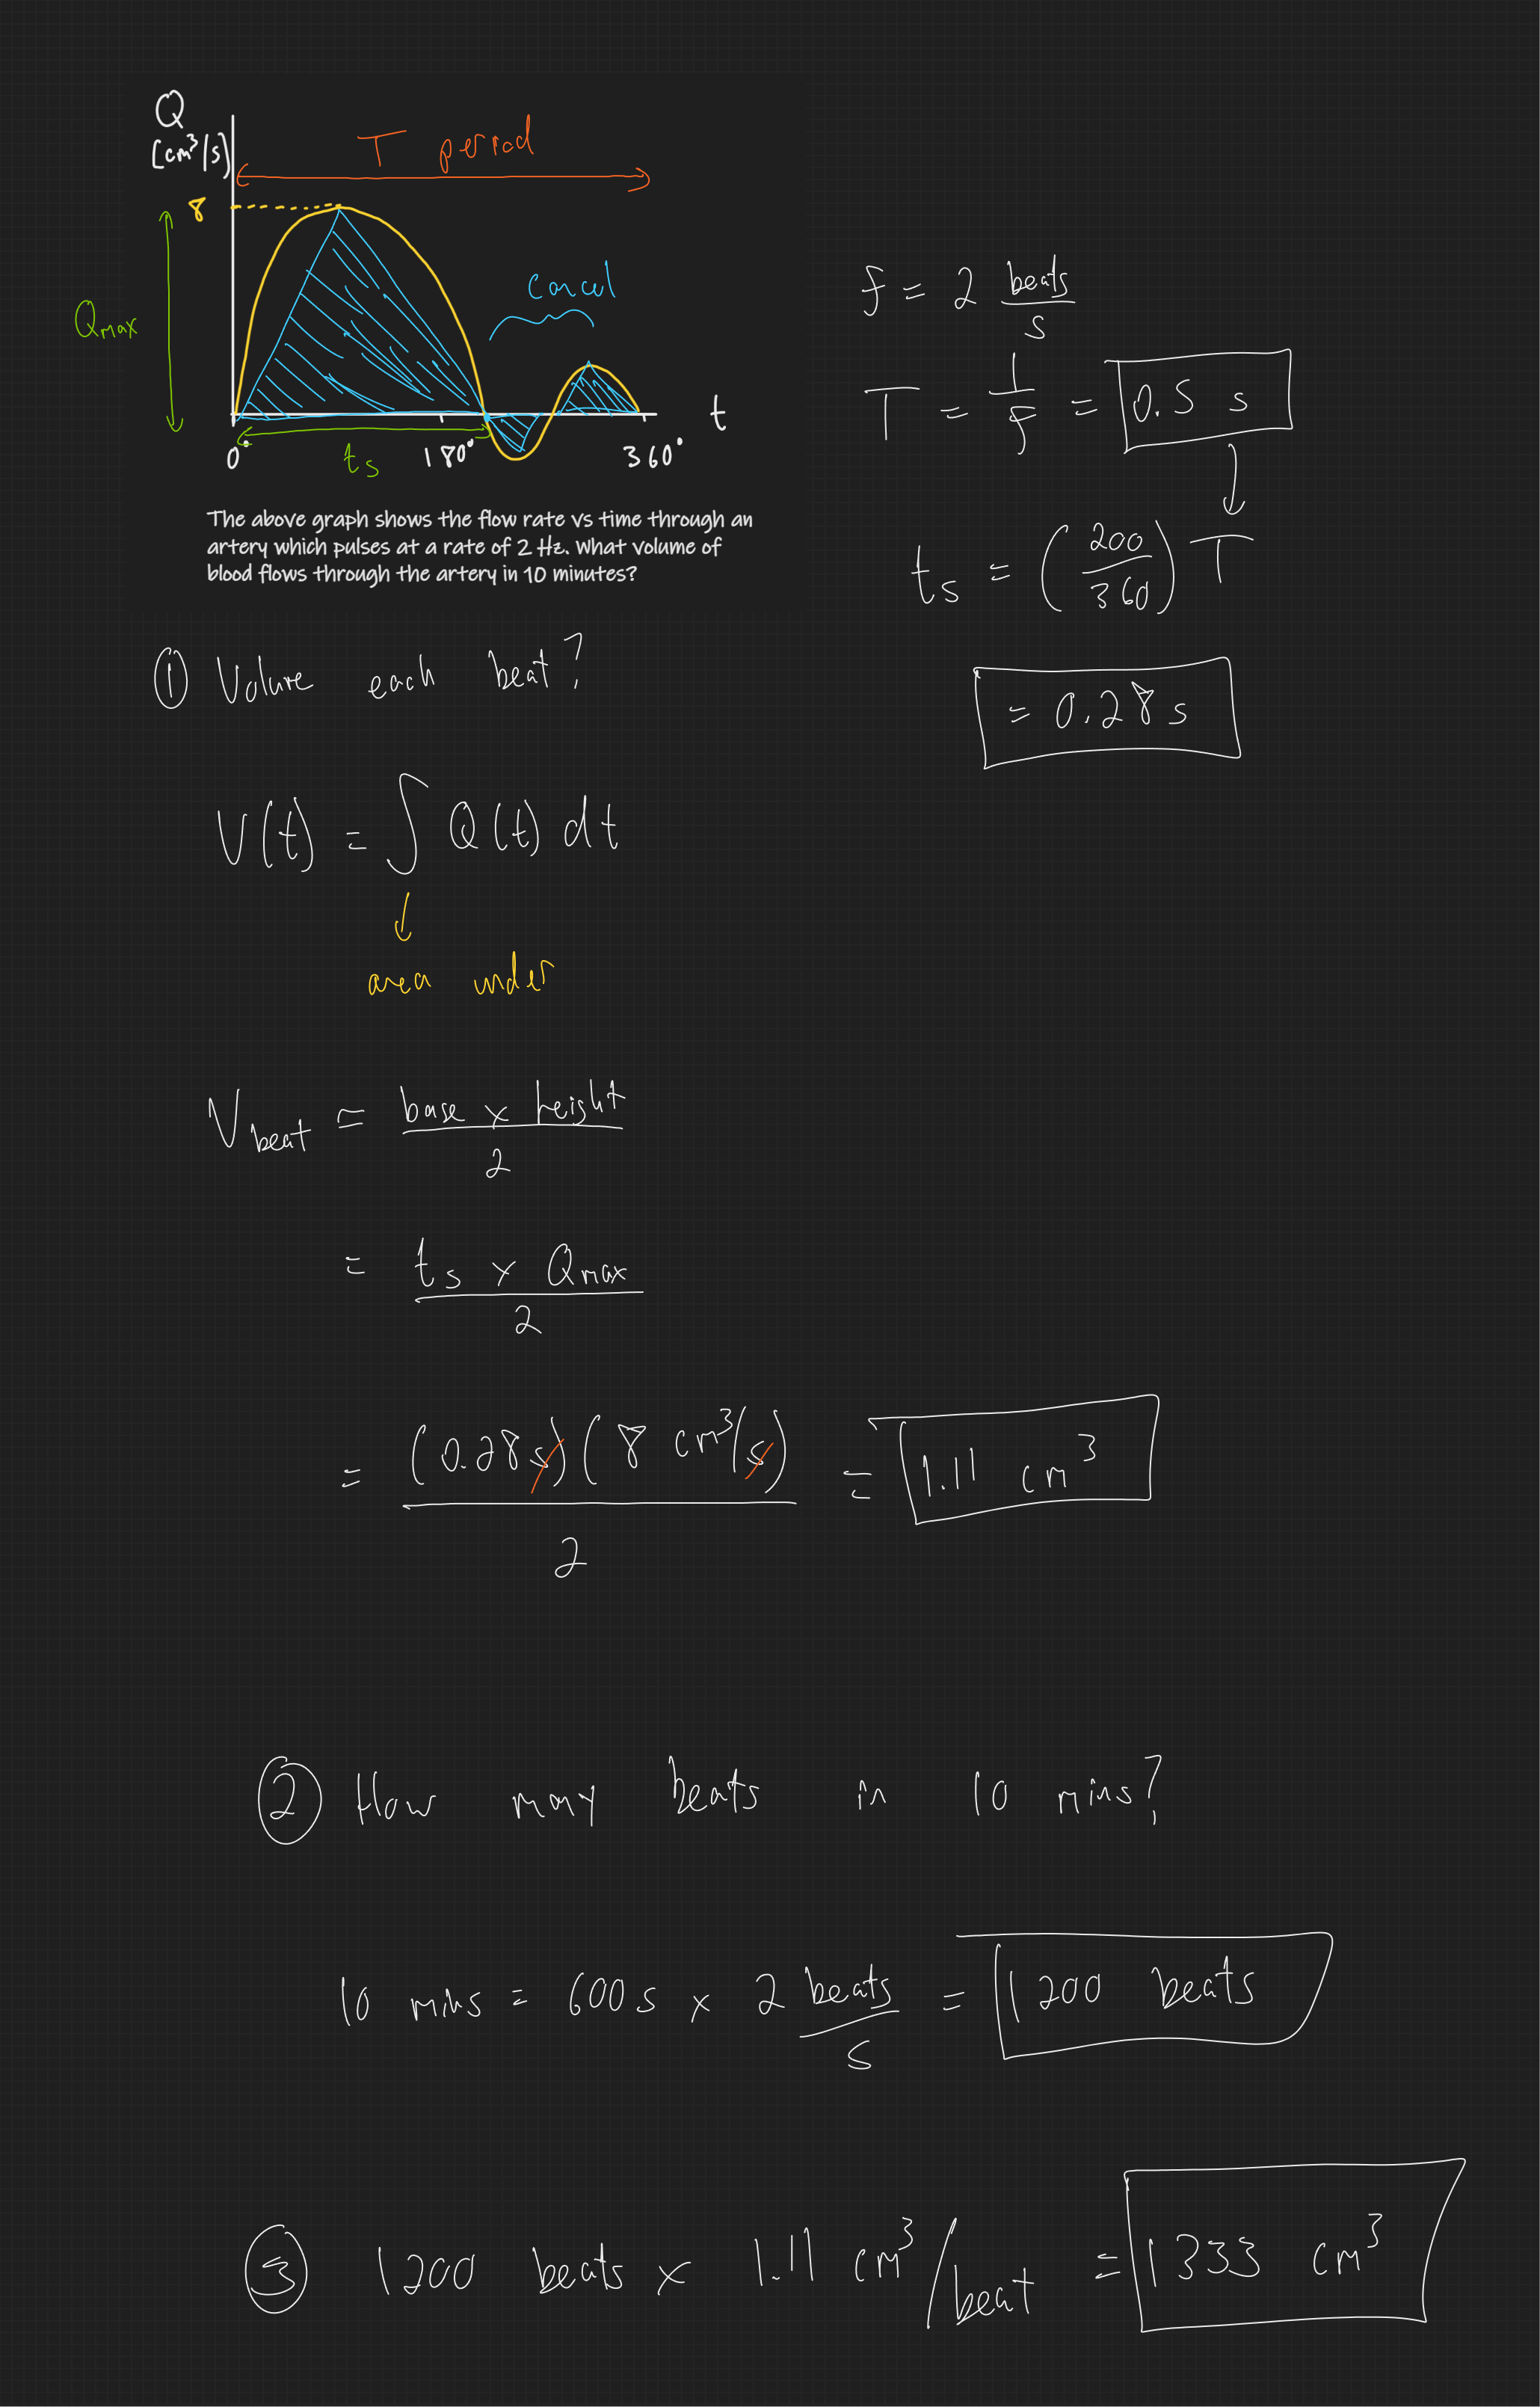 Q
[cm³/s]
T period
8
Qmax
Cancel
t
0°
ts
180°
360°
The above graph shows the flow rate vs time through an
artery which pulses at a rate of 2 Hz. What volume of
blood flows through the artery in 10 minutes?
f = 2 beats/s
T = 1/f = 0.5 s
ts = (200/360) T
= 0.28 s
① Volume each beat?
V(t) = ∫ Q(t) dt
area under
Vbeat = base x height / 2
= ts x Qmax / 2
= (0.28 s) (8 cm³/s) / 2 = 1.11 cm³
② How many beats in 10 mins?
10 mins = 600 s x 2 beats/s = 1200 beats
③ 1200 beats x 1.11 cm³/beat = 1333 cm³